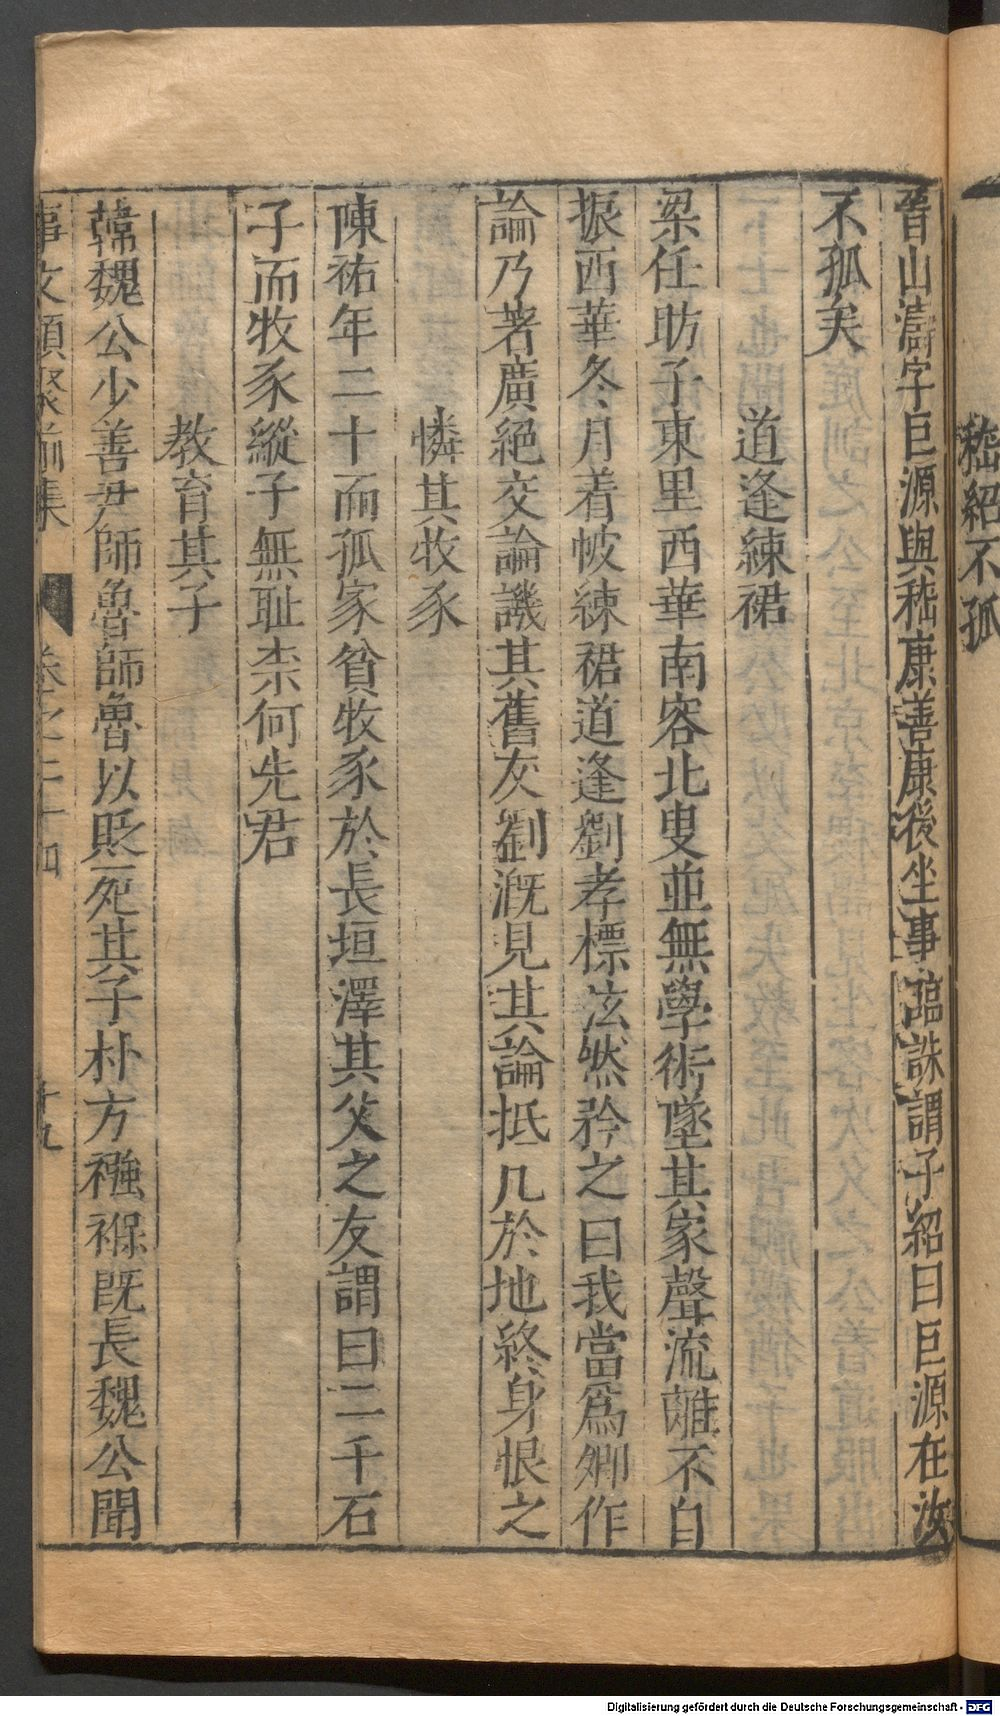 嵇紹不孤
晉山濤字巨源與嵇康善康後坐事臨誅謂子紹曰巨源在汝
不孤矣
道逢練裙
梁任昉子東里西華南容北叟並無學術墜其家聲流離不自
振西華冬月着帔練裙道逢劉孝標泫然矜之曰我當爲卿作
論乃著廣絕交論譏其舊友劉溉見其論抵几於地終身恨之
憐其牧豕
陳祐年二十而孤家貧牧豕於長垣澤其父之友謂曰二千石
子而牧豕縱子無耻柰何先君
教育其子
韓魏公少善尹師魯師魯以貶死其子朴方襁褓既長魏公聞
事文類聚前集 卷之二十四 十九
Digitalisierung gefördert durch die Deutsche Forschungsgemeinschaft - DFG